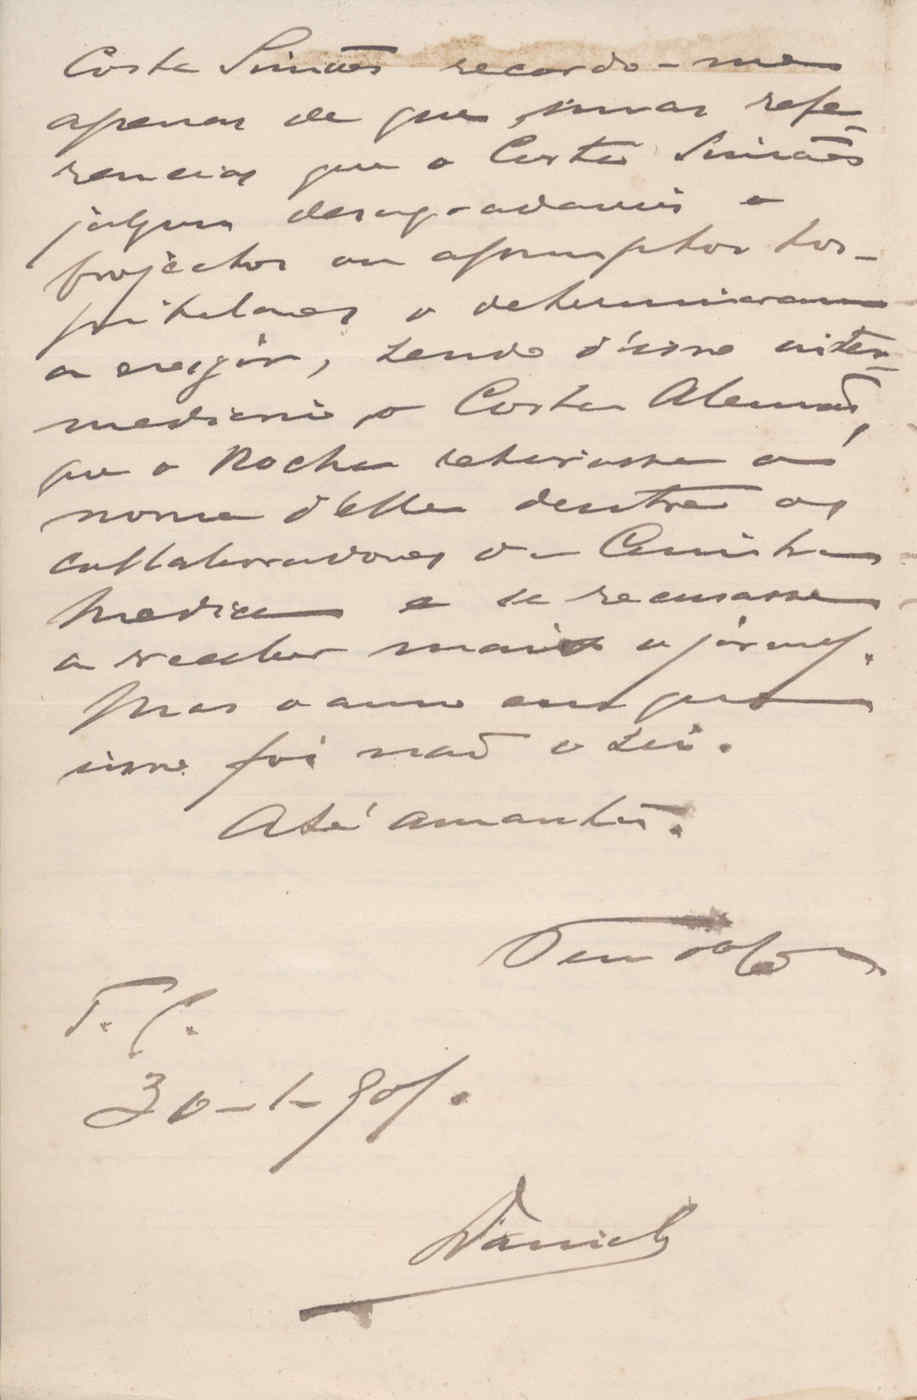 Costa Simões recordo-me
apenas de que numas refe-
rencias que o Costa Simões
julgou desagradaveis a
projectos ou assumptos hos-
pitalares o determinaram
a exigir, sendo d'isso inter-
mediario o Costa Alemão,
que o Rocha retirasse o
nome d'elle dentre os
collaboradores da Coimbra
Medica e se recusasse
a receber mais o jornal.
Mas o anno em que
isso foi não o sei.
Até amanhã.
T. C.
30-1-901.
Daniel